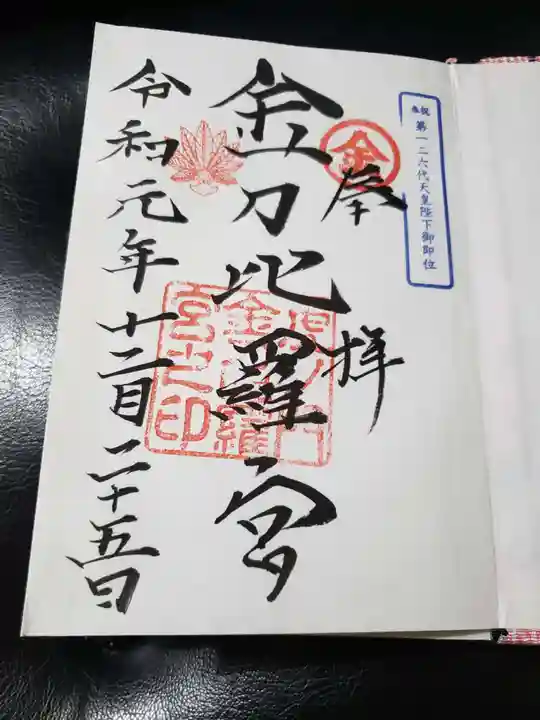 奉祝 第一二六代天皇陛下御即位
奉拝
金
金刀比羅宮
令和元年十二月二十五日